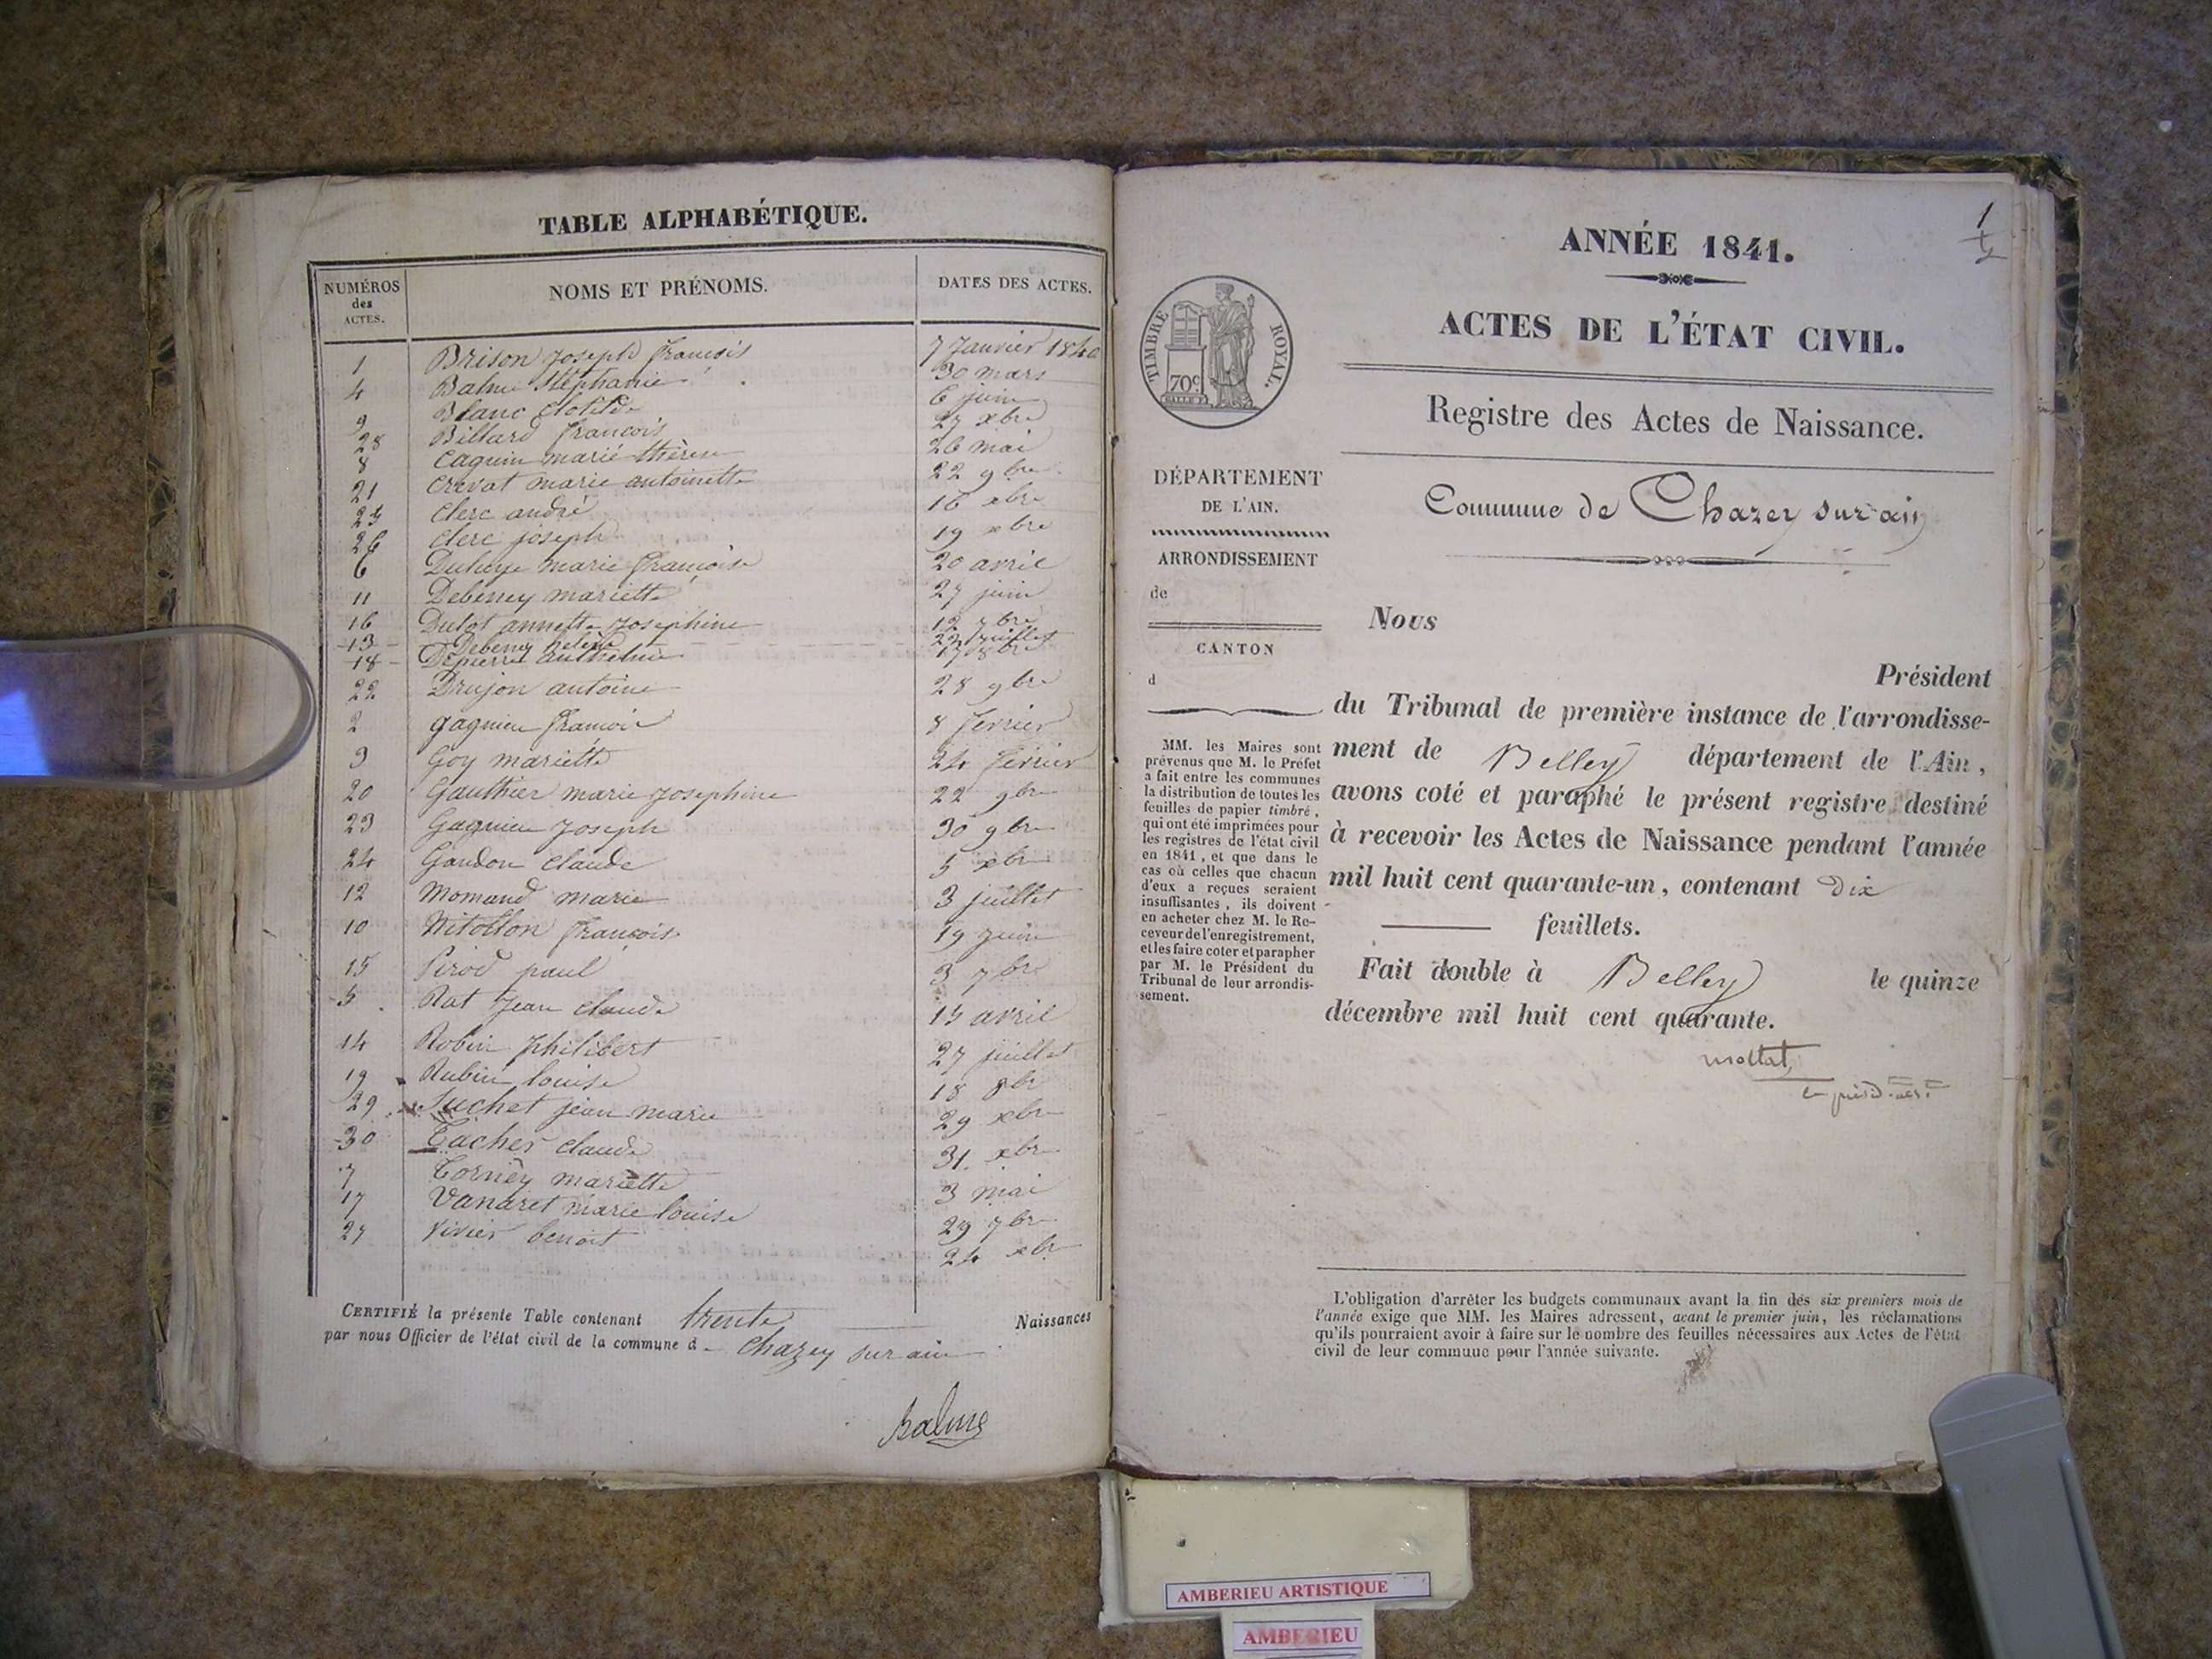 TABLE ALPHABÉTIQUE.
NUMÉROS des ACTES. NOMS ET PRÉNOMS. DATES DES ACTES.
1 Brison Joseph François 7 Janvier 1840
4 Balme Stéphanie 30 mars
9 Blanc Clotilde 6 juin
28 Billard François 27 xbre
8 Caguin marie thérèse 26 mai
21 Crevat marie antoinette 22 9bre
25 Clerc andré 16 xbre
26 Clerc joseph 19 xbre
6 marie françoise 20 avril
11 Debeney mariette 27 juin
16 Dulot annette Josephine 12 7bre
13 Debeney 22 juillet
18 Depierre anthelme 17 8bre
22 Drujon antoine 28 9bre
2 gagnieu françois 8 fevrier
3 Goy mariette 24 fevrier
20 Gauthier marie Josephine 22 9bre
23 Gagnieu Joseph 30 9bre
24 Gaudon Claude 5 xbre
12 Momand marie 3 juillet
10 Nitollon François 19 Juin
15 Perod paul 3 7bre
5 Rat Jean Claude 15 avril
14 Robin Philibert 27 juillet
19 Rubin louise 18 8br
29 Suchet jean marie 29 xbre
30 Tacher Claude 31 xbre
7 Torniéy mariette 3 mai
17 Vanaret marie louise 29 7bre
27 Vivier benoit 24 xbr
CERTIFIÉ la présente Table contenant trente Naissances
par nous Officier de l'état civil de la commune d Chazey sur ain
Balme
1
ANNÉE 1841.
ACTES DE L'ÉTAT CIVIL.
Registre des Actes de Naissance.
Commune de Chazey sur ain
TIMBRE ROYAL.
70c
DÉPARTEMENT
DE L'AIN.
ARRONDISSEMENT
de
CANTON
d
MM. les Maires sont
prévenus que M. le Préfet
a fait entre les communes
la distribution de toutes les
feuilles de papier timbré,
qui ont été imprimées pour
les registres de l'état civil
en 1841, et que dans le
cas où celles que chacun
d'eux a reçues seraient
insuffisantes, ils doivent
en acheter chez M. le Re-
ceveur de l'enregistrement,
et les faire coter et parapher
par M. le Président du
Tribunal de leur arrondis-
sement.
Nous
Président
du Tribunal de première instance de l'arrondisse-
ment de Belley département de l'Ain,
avons coté et paraphé le présent registre destiné
à recevoir les Actes de Naissance pendant l'année
mil huit cent quarante-un, contenant Dix
feuillets.
Fait double à Belley le quinze
décembre mil huit cent quarante.
L'obligation d'arrêter les budgets communaux avant la fin des six premiers mois de
l'année exige que MM. les Maires adressent, avant le premier juin, les réclamations
qu'ils pourraient avoir à faire sur le nombre des feuilles nécessaires aux Actes de l'état
civil de leur commune pour l'année suivante.
AMBERIEU ARTISTIQUE
AMBERIEU